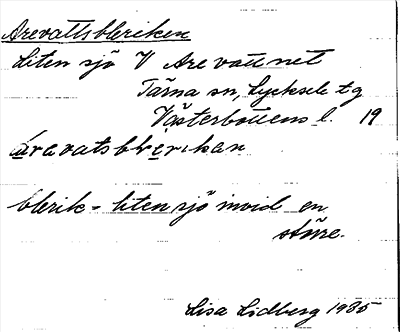 Arevattsbleriken
Liten sjö V Arevattnet
Tärna sn, Lycksele tg
Västerbottens l. 19
árevatsblerikan
blerik - liten sjö invid en
större.
Lisa Lidberg 1985